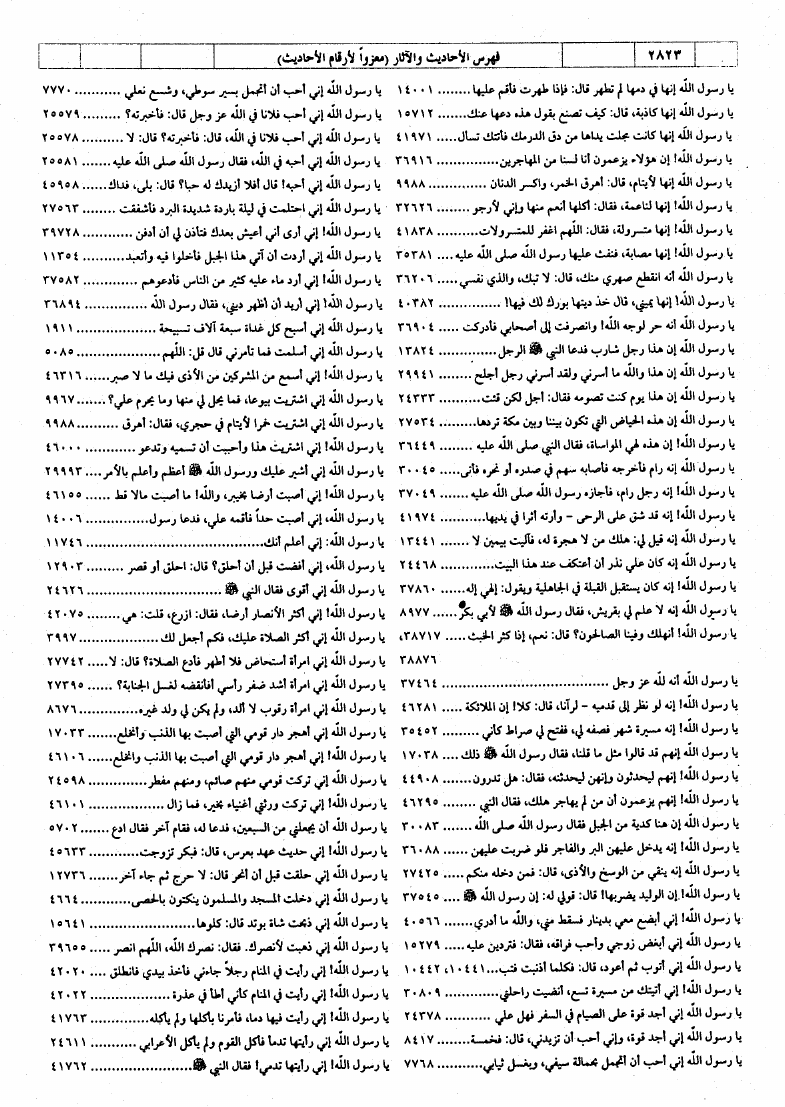 ٢٨٢٣
فهرس الأحاديث والآثار (معزواً لأرقام الأحاديث)
يا رسول الله إنها في دمها لم تطهر قال: فإذا طهرت فأقم عليها........ ١٤٠٠١
يا رسول الله إنها كاذبة، قال: كيف تصنع بقول هذه دعها عنك....... ١٥٧١٢
يا رسول الله إنها كانت مجلت يداها من دق الدرمك فأتتك تسأل...... ٤١٩٧١
يا رسول الله! إن هؤلاء يزعمون أنا لسنا من المهاجرين............... ٣٦٩١٦
يا رسول الله إنها لأيتام، قال: أهرق الخمر، واكسر الدنان ............ ٩٩٨٨
يا رسول الله! إنها لناعمة، فقال: أكلها أنعم منها وإني لأرجو ........ ٣٢٦٢٦
يا رسول الله! إنها متسرولة، فقال: اللهم اغفر للمتسرولات........... ٤١٨٣٨
يا رسول الله! إنها مصابة، فنفث عليها رسول الله صلى الله عليه...... ٣٥٣٨١
يا رسول الله أنه انقطع صهري منك، قال: لا تبك، والذي نفسي...... ٣٦٢٠٦
يا رسول الله! إنها يميني، قال خذ دينها بورك لك فيها!............... ٤٠٣٨٢
يا رسول الله أنه حر لوجه الله! وانصرفت إلى أصحابي فأدركت ..... ٣٦٩٠٤
يا رسول الله إن هذا رجل شارب فدعا النبي ﷺ الرجل............. ١٣٨٢٤
يا رسول الله إن هذا والله ما أسرني ولقد أسرني رجل أجلح ......... ٢٩٩٤١
يا رسول الله إن هذا يوم كنت تصومه فقال: أجل لكن قئت........... ٢٤٣٣٣
يا رسول الله إن هذه الحياض التي تكون بيننا وبين مكة تردها........ ٢٧٥٣٤
يا رسول الله! إن هذه لهي المواساة، فقال النبي صلى الله عليه ........ ٣٦٤٤٩
يا رسول الله إنه رام فأخرجه فأصابه سهم في صدره أو نحره فأتى.... ٣٠٠٤٥
يا رسول الله! إنه رجل رام، فأجازه رسول الله صلى الله عليه......... ٣٧٠٤٩
يا رسول الله! إنه قد شق علي الرحى - وأرته أثرا في يديها........... ٤١٩٧٤
يا رسول الله إنه قيل لي: هلك من لا هجرة له، فآليت بيمين لا ....... ١٣٤٤١
يا رسول الله إنه كان علي نذر أن أعتكف عند هذا البيت............. ٢٤٤٦٨
يا رسول الله! إنه كان يستقبل القبلة في الجاهلية ويقول: إلهي إله...... ٣٧٨٦٠
يا رسول الله إنه لا علم لي بقريش، فقال رسول الله ﷺ لأبي بكر..... ٨٩٧٧
يا رسول الله! أنهلك وفينا الصالحون؟ قال: نعم، إذا كثر الخبث ..... ٣٨٧١٧،
٣٨٨٧٦
يا رسول الله أنه لله عز وجل ........................................ ٣٧٤٦٤
يا رسول الله! إنه لو نظر إلى قدميه - لرآنا، قال: كلا! إن الملائكة ..... ٤٦٢٨١
يا رسول الله! إنه مسيرة شهر فصفه لي، ففتح لي صراط كأني ........ ٣٥٤٥٢
يا رسول الله إنهم قد قالوا مثل ما قلنا، فقال رسول الله ﷺ ذلك .... ١٧٠٣٨
يا رسول الله! إنهم ليحدثون وإنهن ليحدثنه، فقال: هل تدرون....... ٤٤٩٠٨
يا رسول الله! إنهم يزعمون أن من لم يهاجر هلك، فقال النبي ........ ٤٦٢٩٥
يا رسول الله إن هنا كدية من الجبل فقال رسول الله صلى الله ........ ٣٠٠٨٣
يا رسول الله! إنه يدخل عليهن البر والفاجر فلو ضربت عليهن ...... ٣٦٠٨٨
يا رسول الله! إنه ينقي من الوسخ والأذى، قال: فمن دخله منكم..... ٢٧٤٢٥
يا رسول الله! إن الوليد يضربها! قال: قولي له: إن رسول الله ﷺ .... ٣٧٥٤٥
يا رسول الله! إني أبضع معي بدينار فسقط مني، والله ما أدري....... ٤٠٥٦٦
يا رسول الله! إني أبغض زوجي وأحب فراقه، فقال: فتردين عليه ..... ١٥٢٧٩
يا رسول الله إني أتوب ثم أعود، قال: فكلما أذنبت فتب... ١٠٤٤١، ١٠٤٤٢
يا رسول الله! إني أتيتك من مسيرة تسع، أنضيت راحلتي............. ٣٠٨٠٩
يا رسول الله! إني أجد قوة على الصيام في السفر فهل علي ........... ٢٤٣٧٨
يا رسول الله إني أجد قوة، وإني أحب أن تزيدني، قال: فخمسة...... ٨٤١٧
يا رسول الله إني أحب أن أتجمل بحمالة سيفي، وبغسل ثيابي......... ٧٧٦٨
يا رسول الله إني أحب أن أتجمل بسير سوطي، وشسع نعلي .......... ٧٧٧٠
يا رسول الله إني أحب فلانا في الله عز وجل قال: فأخبرته؟ ......... ٢٥٥٧٩
يا رسول الله إني أحب فلانا في الله، قال: فأخبرته؟ قال: لا ........ ٢٥٥٧٨
يا رسول الله! إني أحبه في الله، فقال رسول الله صلى الله عليه ....... ٢٥٥٨١
يا رسول الله إني أحبه! قال أفلا أزيدك له حبا؟ قال: بلى، فداك...... ٤٥٩٥٨
يا رسول الله إني احتلمت في ليلة باردة شديدة البرد فأشفقت ........ ٢٧٥٦٣
يا رسول الله! إني أرى أني أعيش بعدك فتأذن لي أن أدفن ........... ٣٩٧٢٨
يا رسول الله إني أردت أن آتي هذا الجبل فأخلوا فيه وأتعبد........... ١١٣٥٤
يا رسول الله! إني أرد ماء عليه كثير من الناس فأدعوهم ............ ٣٧٥٨٢
يا رسول الله! إني أريد أن أظهر ديني، فقال رسول الله .............. ٣٦٨٩٤
يا رسول الله إني أسبح كل غداة سبعة آلاف تسبيحة ................ ١٩١١
يا رسول الله إني أسلمت فما تأمرني قال قل: اللهم................... ٥٠٨٥
يا رسول الله! إني أسمع من المشركين من الأذى فيك ما لا صبر...... ٤٦٣١٦
يا رسول الله إني اشتريت بيوعا، فما يحل لي منها وما يحرم علي؟..... ٩٩٦٧
يا رسول الله إني اشتريت خمرا لأيتام في حجري، فقال: أهرق ....... ٩٩٨٨
يا رسول الله! إني اشتريت هذا وأحببت أن تسميه وتدعو ........... ٤٦٠٠٠
يا رسول الله! إني أشير عليك ورسول الله ﷺ أعظم وأعلم بالأمر.... ٢٩٩٩٣
يا رسول الله! إني أصبت أرضا بخيبر، والله! ما أصبت مالا قط ...... ٤٦١٥٥
يا رسول الله، إني أصبت حداً فأقمه علي، فدعا رسول............... ١٤٠٠٦
يا رسول الله: إني أعلم أنك........................................ ١١٧٤٦
يا رسول الله، إني أفضت قبل أن أحلق؟ قال: احلق أو قصر ......... ١٢٩٠٣
يا رسول الله! إني أقوى فقال النبي ﷺ ............................ ٢٤٦٢٦
يا رسول الله! إني أكثر الأنصار أرضا، فقال: ازرع، قلت: هي........ ٤٢٠٧٥
يا رسول الله! إني أكثر الصلاة عليك، فكم أجعل لك................ ٣٩٩٧
يا رسول الله إني امرأة أستحاض فلا أطهر فأدع الصلاة؟ قال: لا..... ٢٧٧٤٢
يا رسول الله إني امرأة أشد ضفر رأسي أفأنقضه لغسل الجنابة؟ ...... ٢٧٣٩٥
يا رسول الله! إني امرأة رقوب لا ألد، ولم يكن لي ولد غيره........... ٨٦٧٦
يا رسول الله! إني أهجر دار قومي التي أصبت بها الذنب وأنخلع...... ١٧٠٣٣
يا رسول الله! إني أهجر دار قومي التي أصبت بها الذنب وانخلع...... ٤٦١٠٦
يا رسول الله! إني تركت قومي منهم صائم، ومنهم مفطر............. ٢٤٥٩٨
يا رسول الله! إني تركت ورثتي أغنياء بخير، فما زال ................. ٤٦١٠١
يا رسول الله أن يجعلني من السبعين، فدعا له، فقام آخر فقال ادع...... ٥٧٠٢
يا رسول الله! إني حديث عهد بعرس، قال: فبكر تزوجت............ ٤٥٦٣٣
يا رسول الله إني حلقت قبل أن أنحر قال: لا حرج ثم جاء آخر....... ١٢٧٣٦
يا رسول الله! إني دخلت المسجد والمسلمون ينكتون بالحصى.......... ٤٦٦٤
يا رسول الله إني ذبحت شاة بوتد قال: كلوها....................... ١٥٦٤١
يا رسول الله! إني ذهبت لأنصرك. فقال: نصرك الله، اللهم انصر ..... ٣٩٦٥٥
يا رسول الله! إني رأيت في المنام رجلاً جاءني فأخذ بيدي فانطلق .... ٤٢٠٢٠
يا رسول الله! إني رأيت في المنام كأني أطأ في عذرة ................... ٤٢٠٢٢
يا رسول الله! إني رأيت فيها دما، فأمرنا بأكلها ولم يأكله............. ٤١٧٦٣
يا رسول الله إني رأيتها تدمأ فأكل القوم ولم يأكل الأعرابي ........... ٢٤٦١١
يا رسول الله! إني رأيتها تدمي! فقال النبي ﷺ..................... ٤١٧٦٢